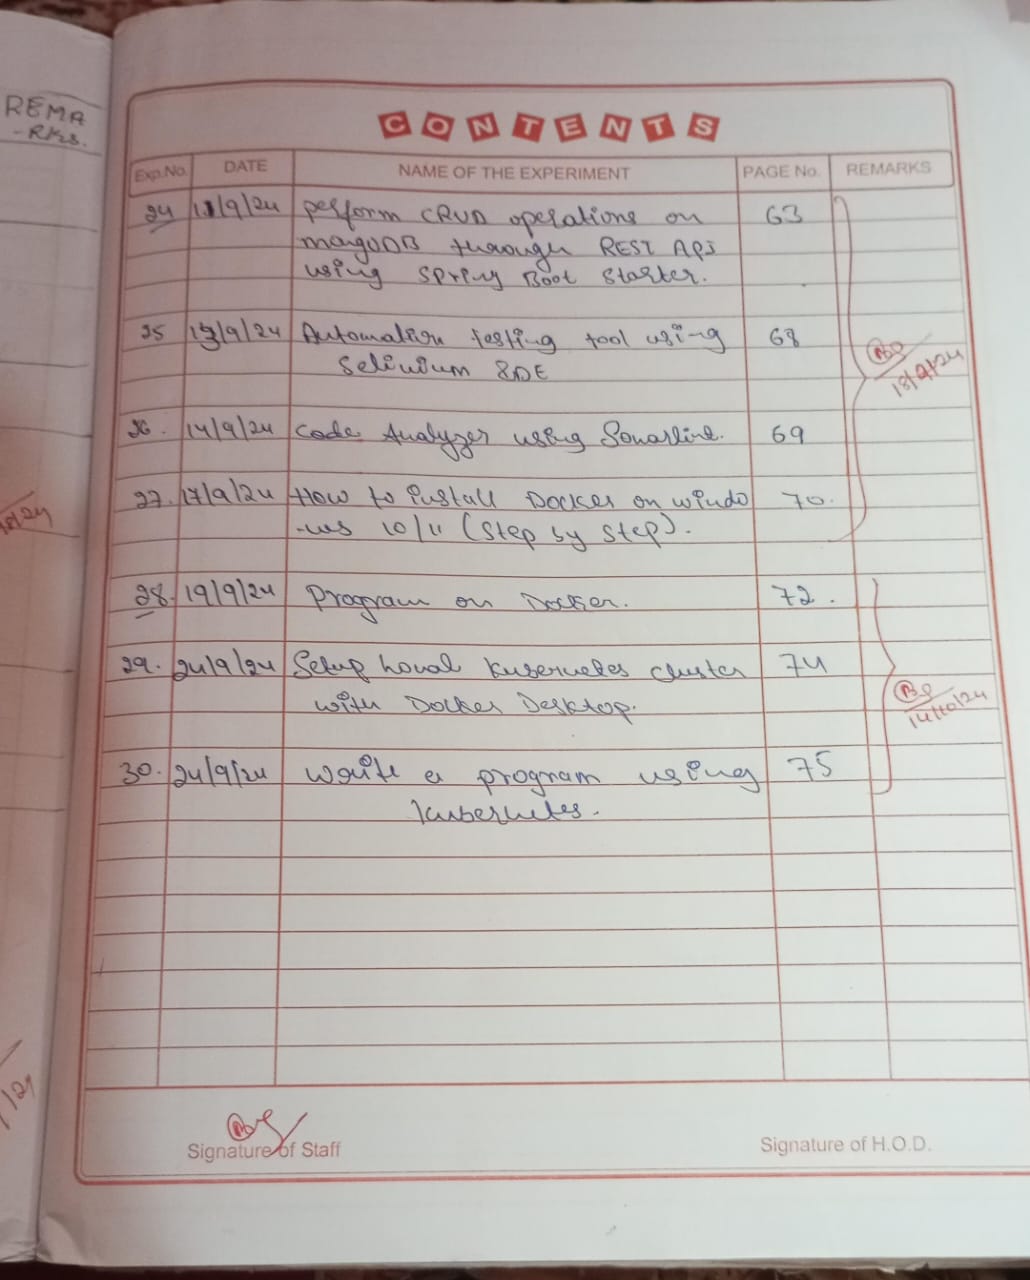 REMA
-RKS.
CONTENTS
Exp.No. DATE NAME OF THE EXPERIMENT PAGE No. REMARKS
24 11/9/24 perform CRUD operations on 63
mangoDB through REST API
using Spring Boot Starter.
25 13/9/24 Automation testing tool using 68
Selinium IDE
18/9/24
26. 14/9/24 Code Analyzer using Sonarlint. 69
27. 17/9/24 How to install Docker on windo 70.
-ws 10/11 (Step by Step).
28. 19/9/24 Program on Docker. 72.
29. 24/9/24 Setup Local Kubernetes cluster 74
with Docker Desktop.
14/10/24
30. 24/9/24 Write a program using 75
Kubernetes.
Signature of Staff Signature of H.O.D.